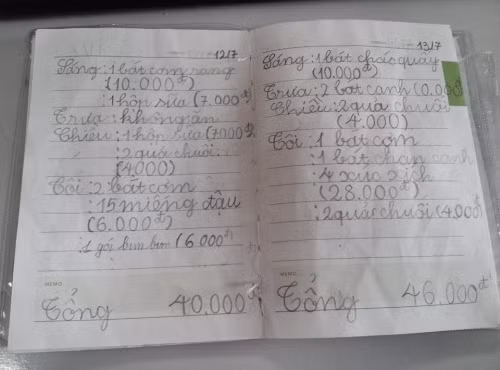 12/7
Sáng: 1 bát cơm rang
(10.000đ)
: 1 hộp sữa (7.000đ)
Trưa: không ăn
Chiều: 1 hộp sữa (7000đ)
: 2 quả chuối
(4.000)
Tối: 2 bát cơm
: 15 miếng đậu
(6.000đ)
1 gói bim bim (6.000đ)
MEMO
Tổng 40.000đ
13/7
Sáng: 1 bát cháo quẩy
(10.000đ)
Trưa: 2 bát canh (0.000đ)
Chiều: 2 quả chuối
(4.000)
Tối: 1 bát cơm
: 1 bát chan canh
: 4 xúc xích
(28.000đ)
: 2 quả chuối (4.000đ)
MEMO
Tổng 46.000đ